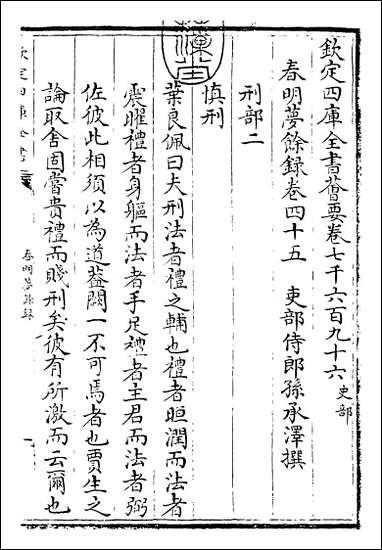 欽定四庫全書薈要卷七千六百九十六 史部
春明夢餘錄卷四十五 吏部侍郎孫承澤撰
刑部二
慎刑
葉良佩曰夫刑法者禮之輔也禮者暄潤而法者
震曜禮者身軀而法者手足禮者主君而法者弼
佐彼此相須以為道葢闕一不可焉者也賈生之
論取舍固嘗貴禮而賤刑矣彼有所激而云爾也
欽定四庫全書
春明夢餘録
一